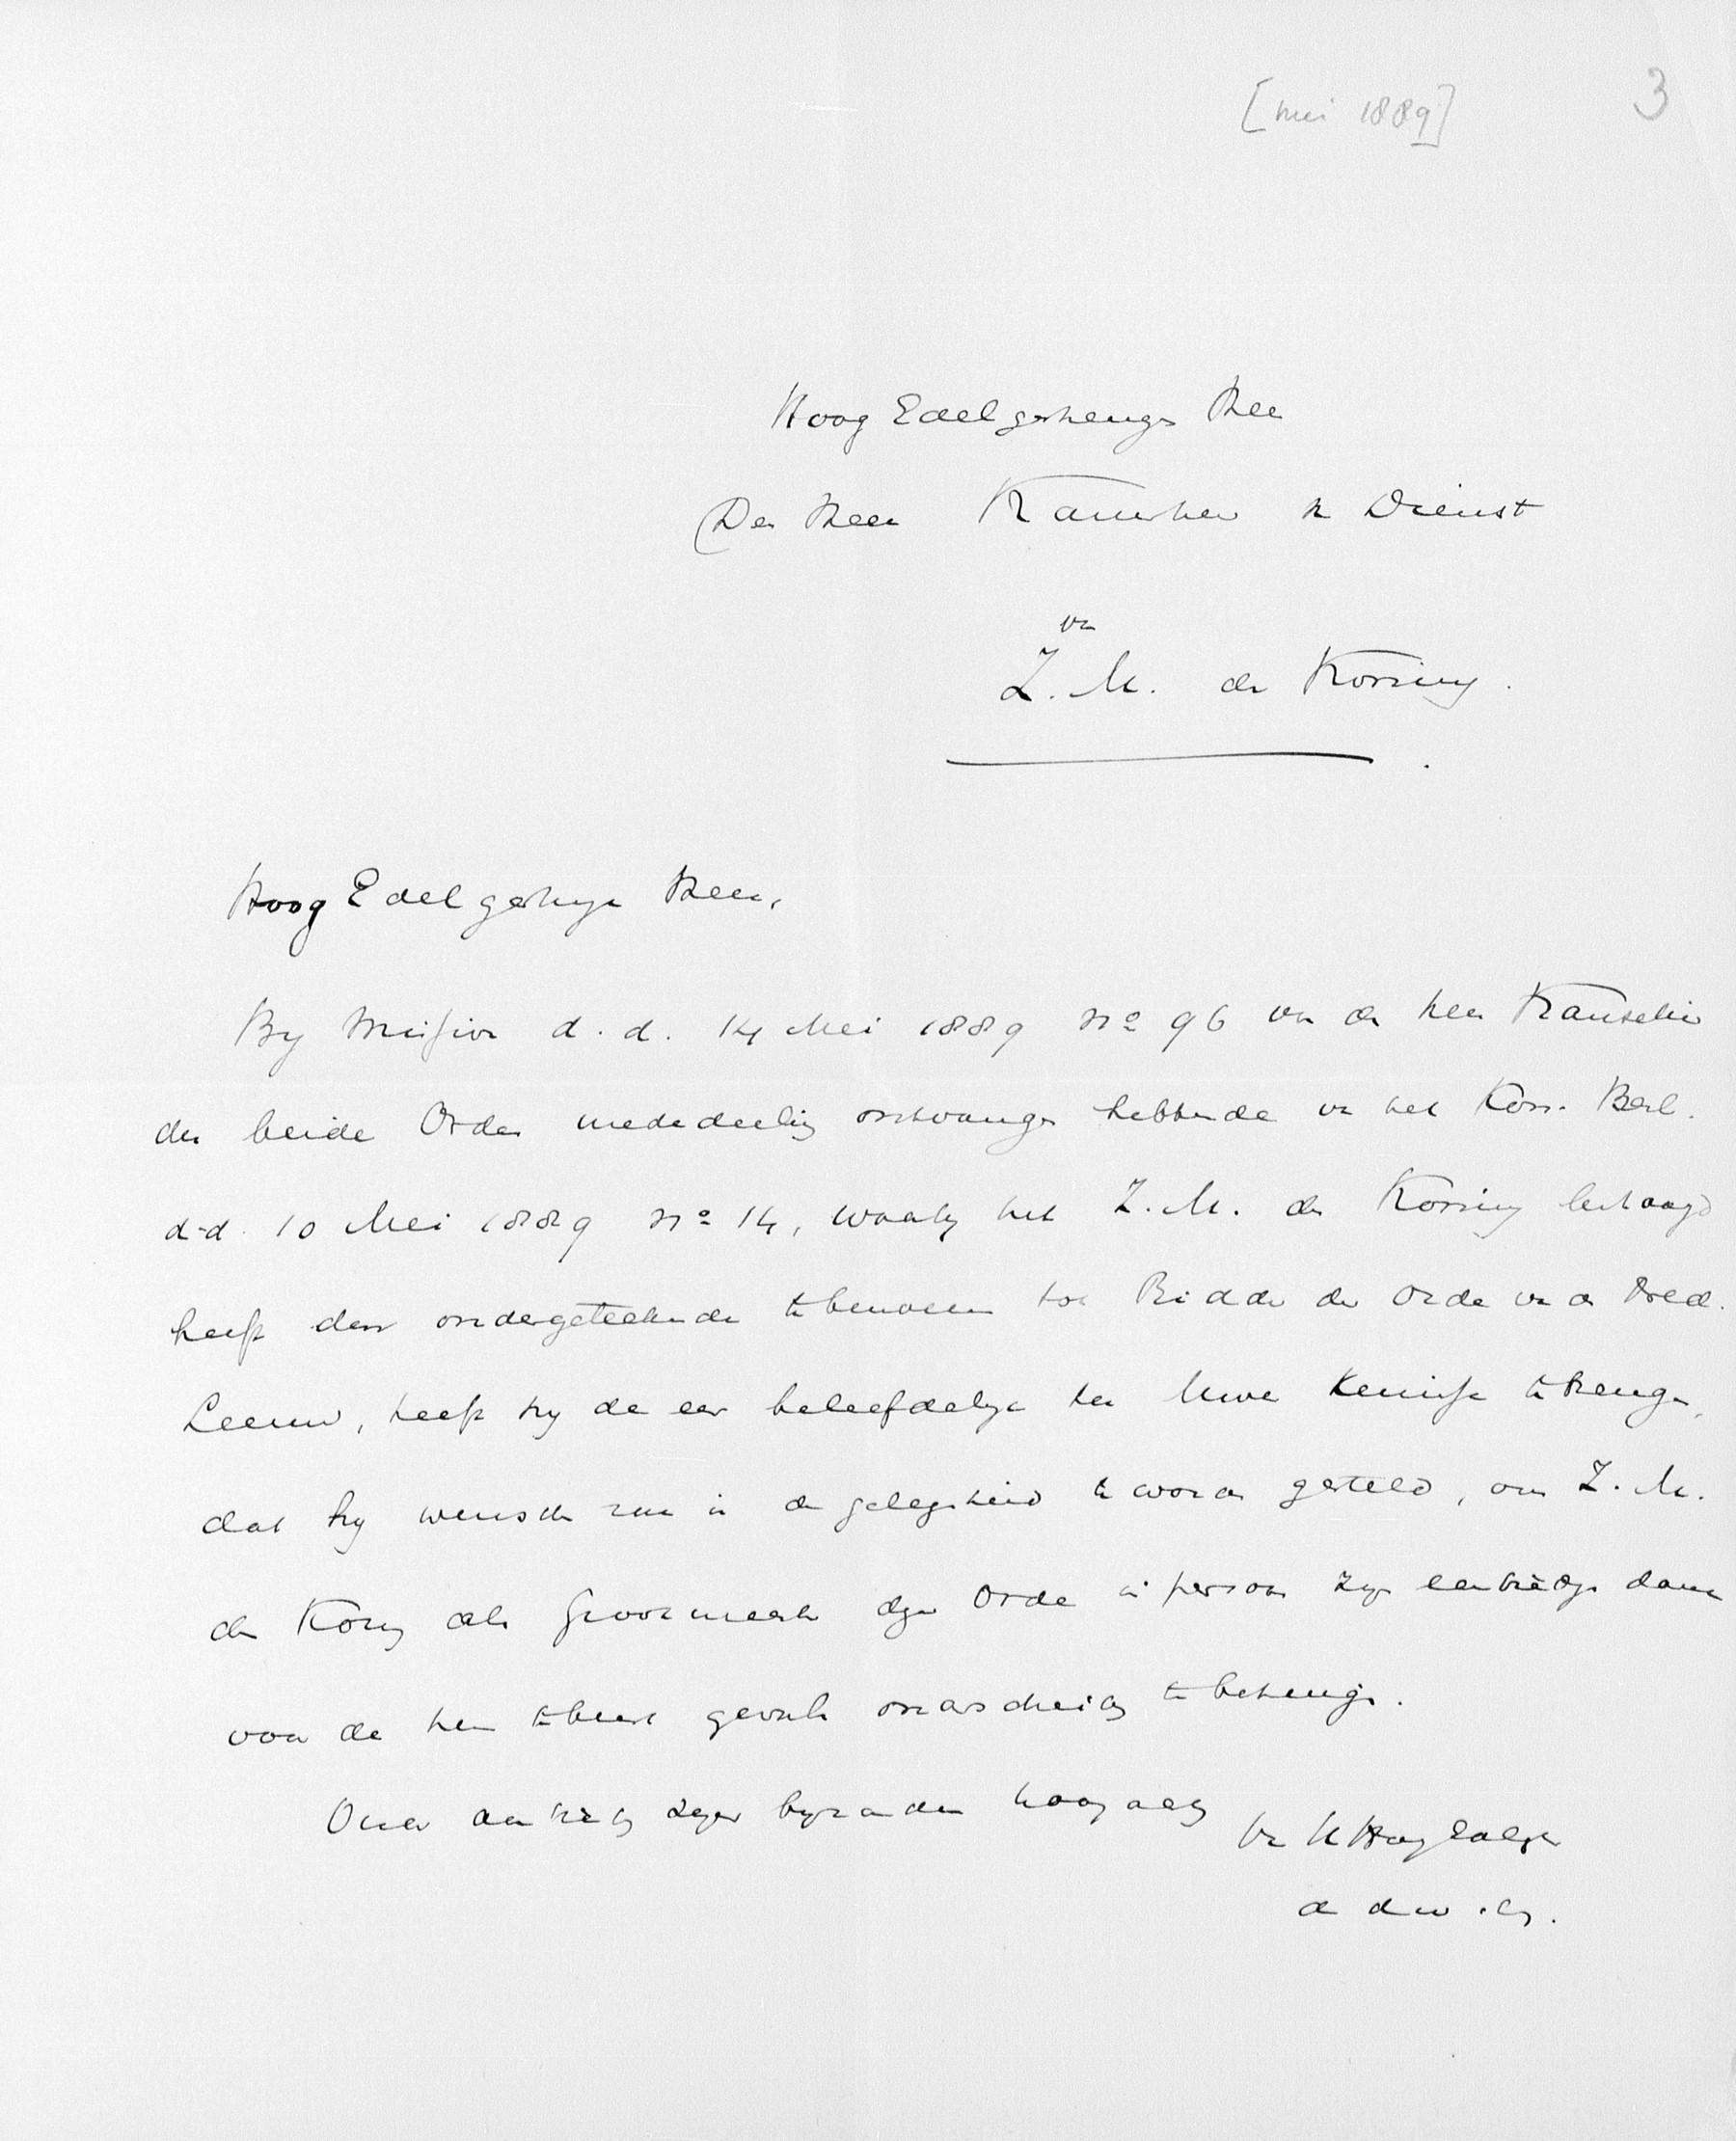 [mei 1889]
3
Hoog Edelgestrenge Heer
Den Heer Kamerheer in Dienst
van
Z. M. den Koning.
Hoog Edelgestrenge Heer,
By Missive d. d. 14 Mei 1889 No 96 van den heer Kanselier
der beide Orden mededeeling ontvangen hebbende van het Kon. Besl.
d-d. 10 Mei 1889 No 14, waarby het Z. M. den Koning behaagd
heeft den ondergeteekende te benoemen tot Ridder der Orde van den Ned.
Leeuw, heeft hy de eer beleefdelyk ter Uwer kennisse te brengen,
dat hy wenscht in de gelegenheid te worden gesteld, om Z. M.
den Koning als Grootmeester dezer Orde in persoon zyn eerbiedigen dank
voor de hem te beurt gevallen onderscheiding te betuigen.
Onder aanbieding zyner byzondere hoogachting
van U HoogEdelgestr
de dw. dr.